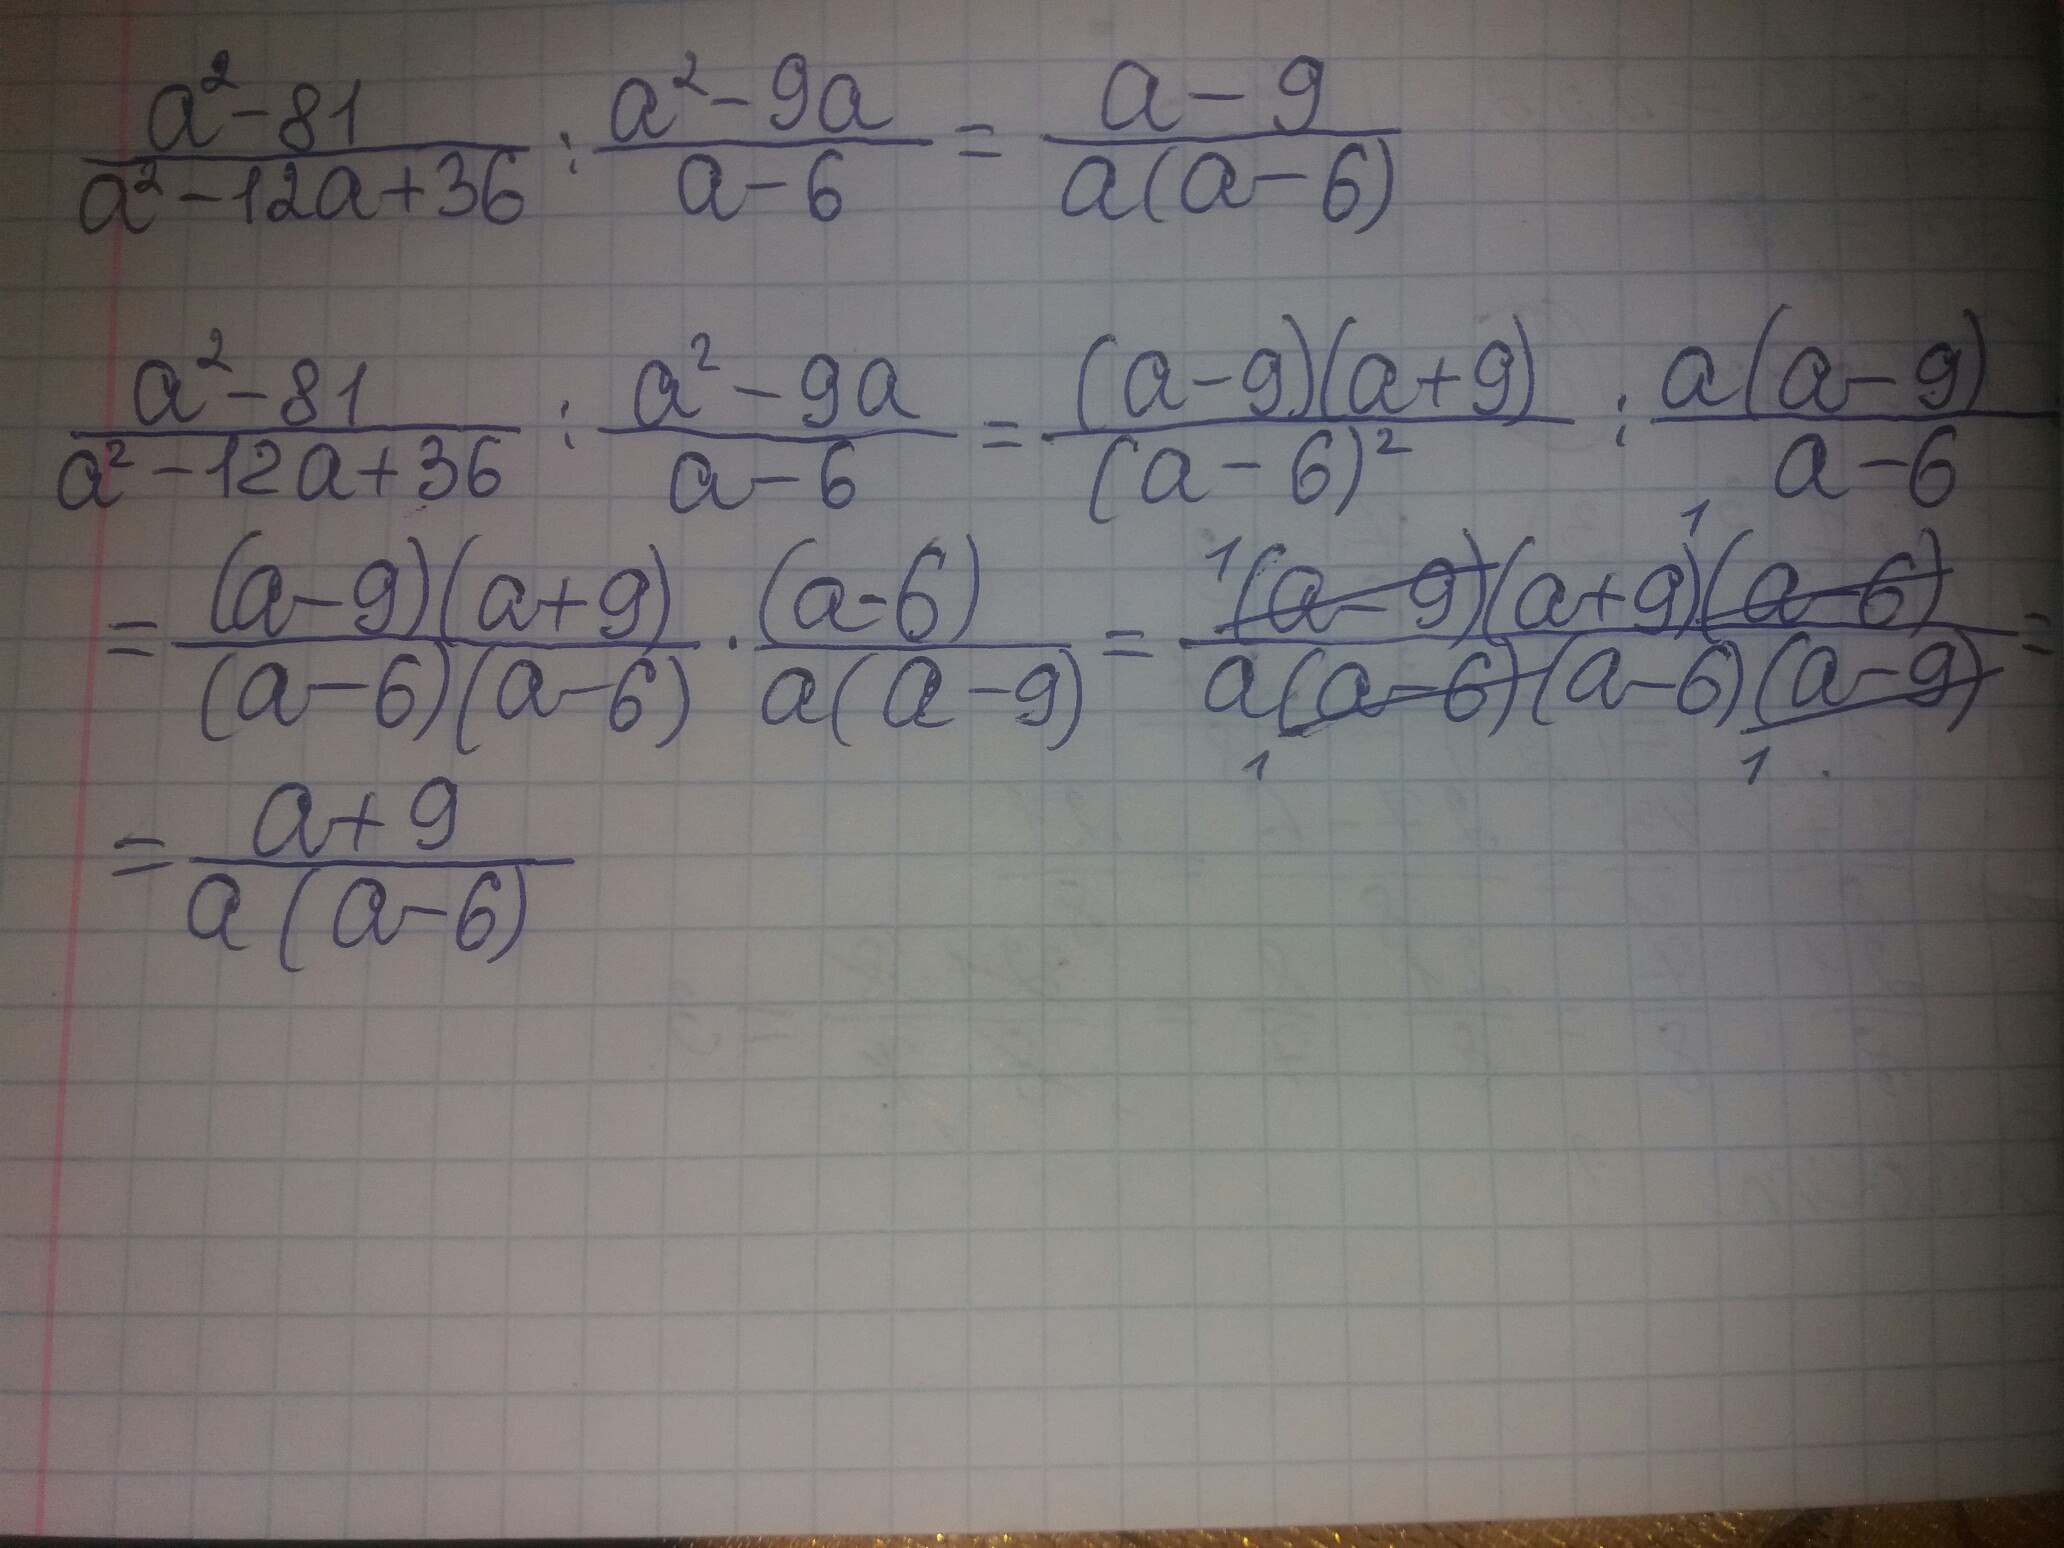 a² - 81 / a² - 12a + 36 : a² - 9a / a - 6 = a - 9 / a(a - 6)
a² - 81 / a² - 12a + 36 : a² - 9a / a - 6 = (a - 9)(a + 9) / (a - 6)² : a(a - 9) / a - 6
= (a - 9)(a + 9) / (a - 6)(a - 6) · (a - 6) / a(a - 9) = ¹(a - 9)(a + 9)¹(a - 6) / a(a - 6)₁(a - 6)(a - 9)₁ =
= a + 9 / a(a - 6)